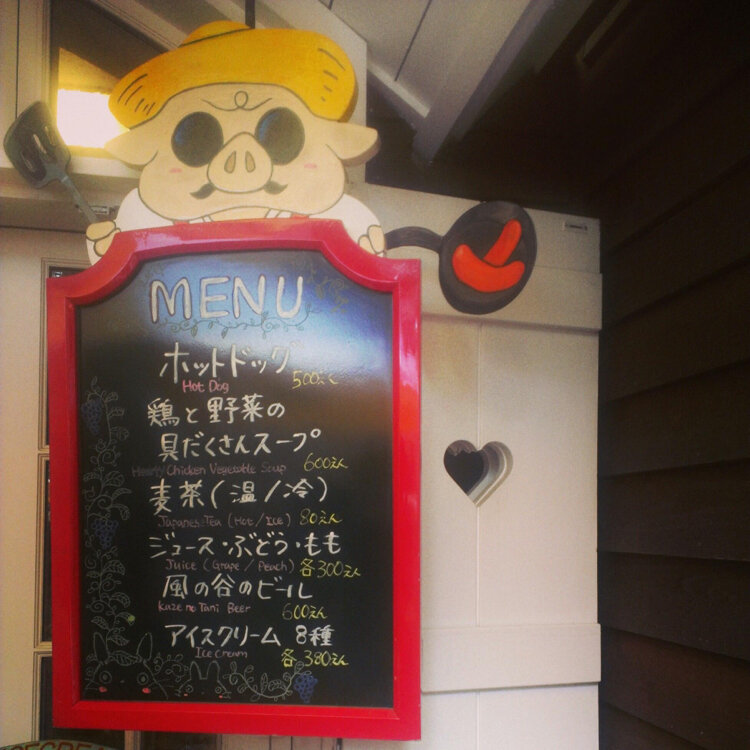 MENU
ホットドッグ
Hot Dog 500えん
鶏と野菜の
具だくさんスープ
Hearty Chicken Vegetable Soup 600えん
麦茶(温/冷)
Japanese Tea (Hot/Ice) 80えん
ジュース・ぶどう・もも
Juice (Grape/Peach) 各300えん
風の谷のビール
Kaze no Tani Beer 600えん
アイスクリーム 8種
Ice Cream 各380えん